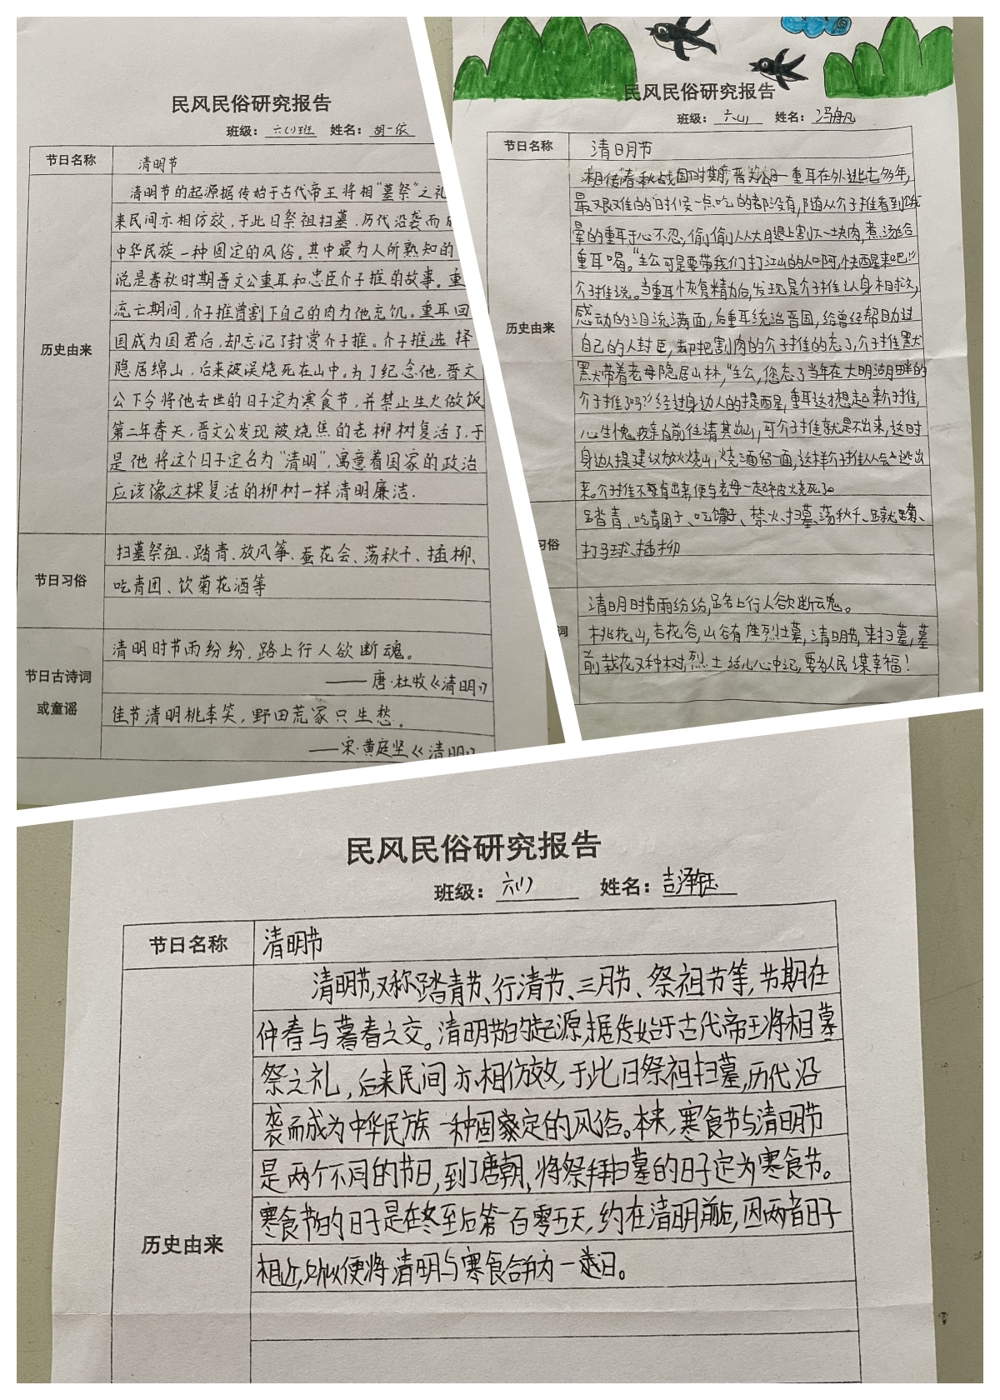 民风民俗研究报告
班级：六(1)班 姓名：胡一依
节日名称 清明节
清明节的起源据传始于古代帝王将相"墓祭"之礼
来民间亦相仿效，于此日祭祖扫墓，历代沿袭而
中华民族一种固定的风俗。其中最为人所熟知的
说是春秋时期晋文公重耳和忠臣介子推的故事。重
流亡期间，介子推曾割下自己的肉为他充饥。重耳回
历史由来 国成为国君后，却忘记了封赏介子推。介子推选择
隐居绵山，后来被误烧死在山中。为了纪念他，晋文
公下令将他去世的日子定为寒食节，并禁止生火做饭
第二年春天，晋文公发现被烧焦的老柳树复活了，于
是他将这个日子定名为"清明"，寓意着国家的政治
应该像这棵复活的柳树一样清明廉洁.
扫墓祭祖、踏青、放风筝、蚕花会、荡秋千、插柳、
节日习俗 吃青团、饮菊花酒等
清明时节雨纷纷，路上行人欲断魂。
节日古诗词 ——唐·杜牧《清明》
或童谣 佳节清明桃李笑，野田荒冢只生愁。
——宋·黄庭坚《清明》
民风民俗研究报告
班级：六(1) 姓名：冯舟凡
节日名称 清明节
相传春秋战国时期，晋公重耳在外逃亡多年，
最艰难的时候一点吃的都没有，随从介子推看到
晕的重耳于心不忍，偷偷从大腿上割下一块肉，煮汤给
重耳喝。"主公可是要带我们打江山的人啊，快醒来吧！"
介子推说。当重耳恢复精力后，发现是介子推以身相救，
感动的泪流满面，后重耳统治晋国，给曾经帮助过
历史由来 自己的人封臣，却把割肉的介子推的忘了，介子推默
默带着老母隐居山林，"主公，您忘了当年在大明湖畔的
介子推了吗？"经过身边人的提醒，重耳这才想起来介子推，
心生愧疚亲自前往请其出山，可介子推就是不出来，这时
身边人提建议放火烧山，烧三面留一面，这样介子推人会逃出
来。介子推不要肯出来，便与老母一起被火烧死了。
踏青、吃青团子、吃馓子、禁火、扫墓、荡秋千、蹴鞠、
习俗 打马球、插柳
清明时节雨纷纷，路上行人欲断魂。
词 桃花山，杏花谷，山谷有座烈士墓，清明节，来扫墓，墓
前栽花又种树，烈士话儿心中记，要为人民谋幸福！
民风民俗研究报告
班级：六(1) 姓名：吉泽钰
节日名称 清明节
清明节，又称踏青节、行清节、三月节、祭祖节等，节期在
仲春与暮春之交。清明节的起源，据传始于古代帝王将相墓
祭之礼，后来民间亦相仿效，于此日祭祖扫墓，历代沿
袭而成为中华民族一种固定的风俗。本来，寒食节与清明节
是两个不同的节日，到了唐朝，将祭拜扫墓的日子定为寒食节。
寒食节的日子是在冬至后第一百零五天，约在清明前后，因两者日子
历史由来 相近，所以便将清明与寒食合并为一日。